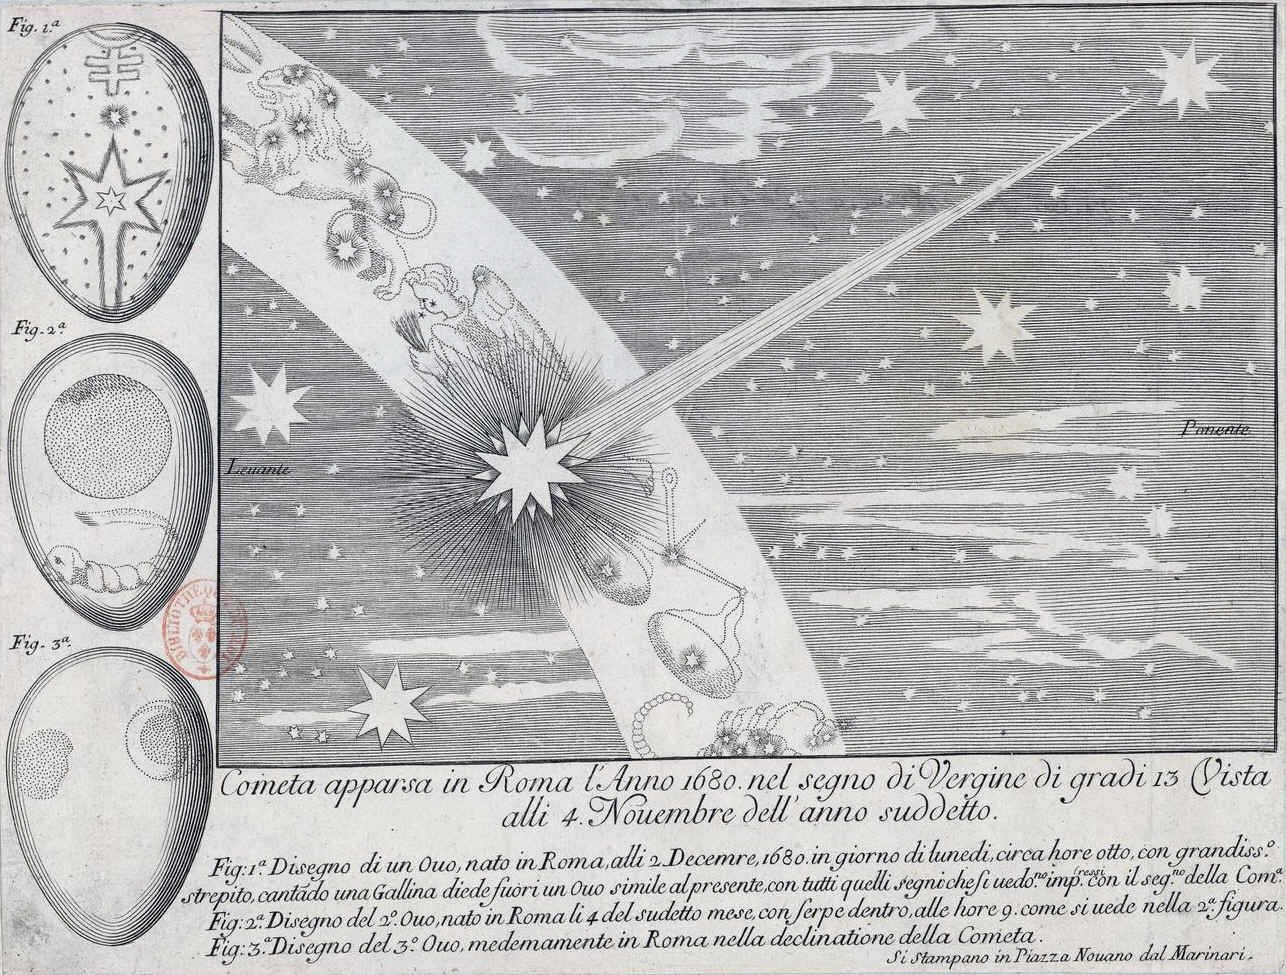 Fig. 1.ª
Fig. 2.ª
Fig. 3.ª
Leuante
Ponente
BIBLIOTHEQUE
Cometa apparsa in Roma l'Anno 1680. nel segno di Vergine di gradi 13 (Vista
alli 4. Nouembre dell'anno suddetto.
Fig: 1.ª Disegno di un Ouo, nato in Roma, alli 2. Decemre, 1680. in giorno di lunedi, circa hore otto, con grandiss.º
strepito, cantãdo una Gallina diede fuori un Ouo simile al presente, con tutti quelli segni che si uedo.no imp.ressi con il seg.no della Com.ª
Fig: 2.ª Disegno del 2.º Ouo, nato in Roma li 4 del sudetto mese, con serpe dentro, alle hore 9. come si uede nella 2.ª figura.
Fig: 3.ª Disegno del 3.º Ouo, medemamente in Roma nella declinatione della Cometa.
Si stampano in Piazza Nouano dal Marinari.